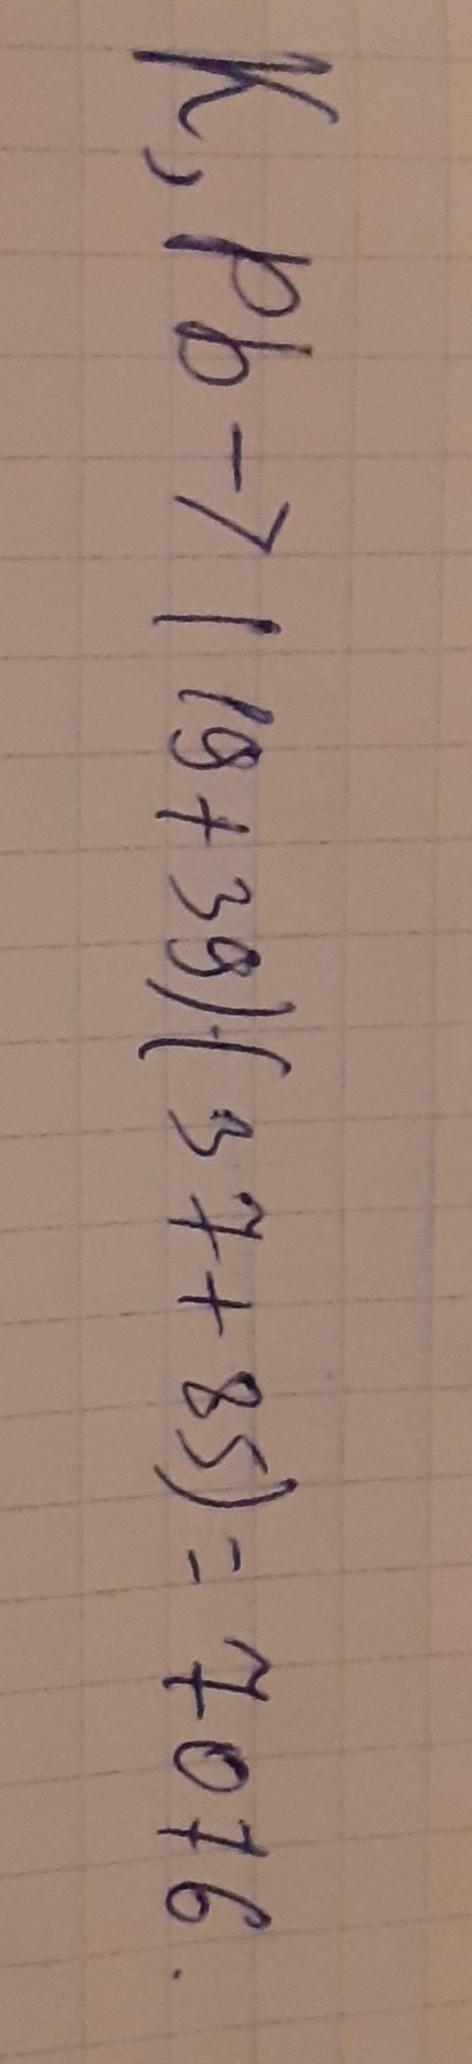 K, Pb -> (19+39)·(37+85) = 7076.